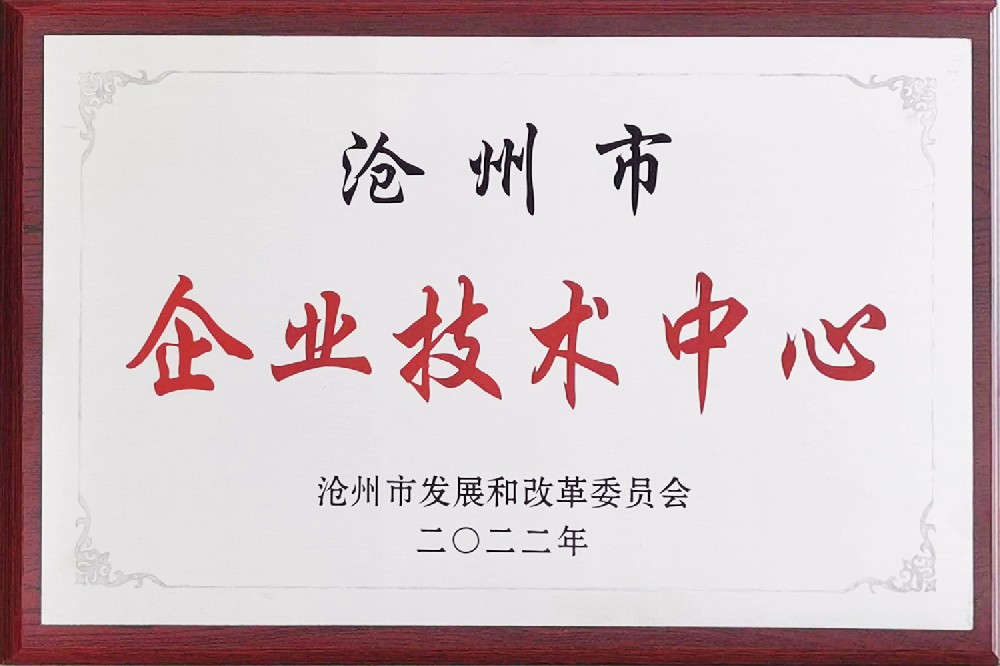 沧州市
企业技术中心
沧州市发展和改革委员会
二〇二二年